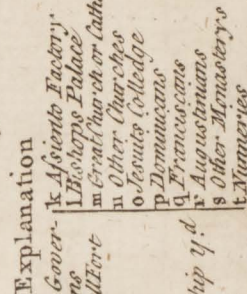 Explanation
Gover-
ns
ll Fort
hip Y.d
k Assiento Factory
l Bishops Palace
m Great Church or Cath
n Other Churches
o Jesuits Colledge
p Dominicans
q Franciscans
r Augustinians
s Other Monasterys
t Nunneries